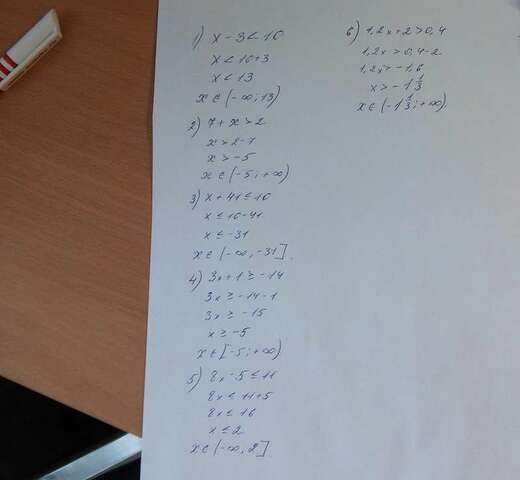 1) x - 3 < 10
x < 10+3
x < 13
x ∈ (-∞; 13)
2) 7 + x > 2
x > 2-7
x > -5
x ∈ (-5; +∞)
3) x + 41 ≤ 10
x ≤ 10-41
x ≤ -31
x ∈ (-∞, -31].
4) 3x + 1 ≥ -14
3x ≥ -14-1
3x ≥ -15
x ≥ -5
x ∈ [-5; +∞)
5) 8x - 5 ≤ 11
8x ≤ 11+5
8x ≤ 16
x ≤ 2
x ∈ (-∞, 2]
6) 1,2x + 2 > 0,4
1,2x > 0,4-2
1,2x > -1,6
x > -1 1/3
x ∈ (-1 1/3; +∞)